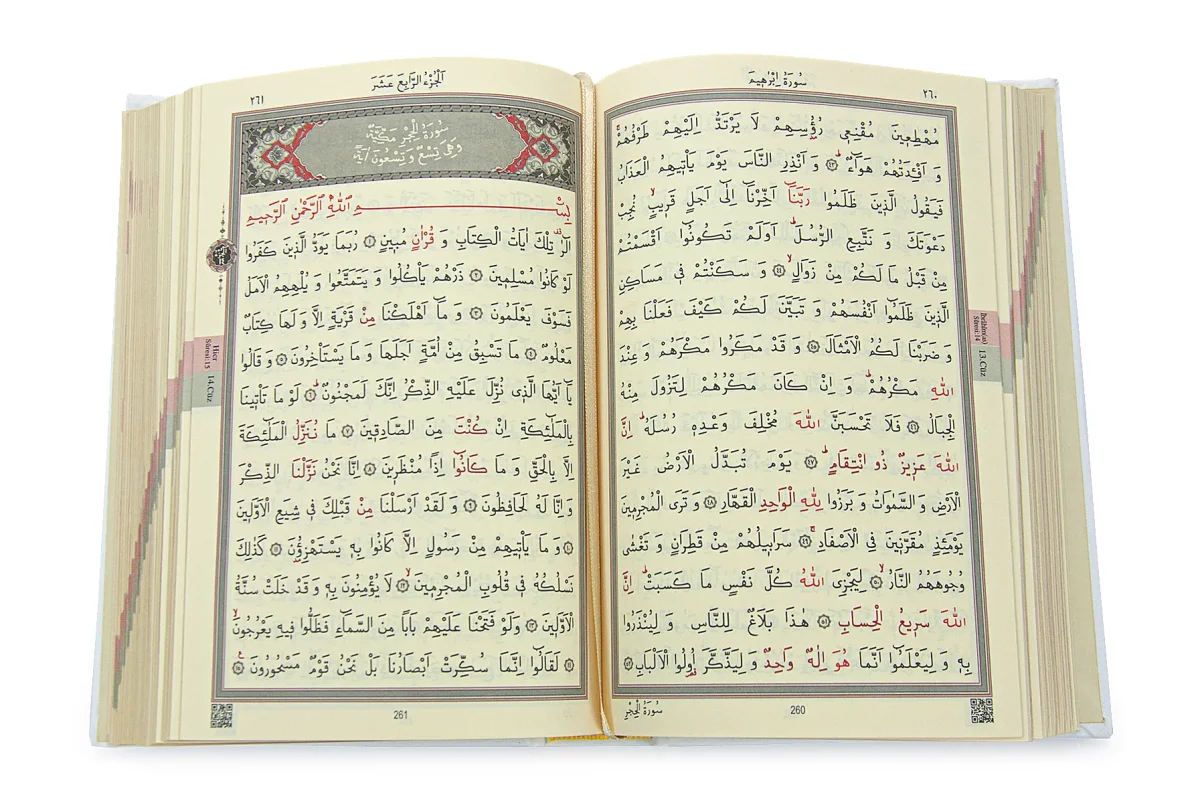 سُورَةُ اِبْرٰه۪يمَ
٢٦٠
مُهْطِع۪ينَ مُقْنِع۪ي رُؤُ۫سِهِمْ لَا يَرْتَدُّ اِلَيْهِمْ طَرْفُهُمْۚ
وَ اَفْـِٔدَتُهُمْ هَوَٓاءٌۜ ﴿٤٣﴾ وَ اَنْذِرِ النَّاسَ يَوْمَ يَأْت۪يهِمُ الْعَذَابُ
فَيَقُولُ الَّذ۪ينَ ظَلَمُوا رَبَّنَٓا اَخِّرْنَٓا اِلٰٓى اَجَلٍ قَر۪يبٍۙ نُجِبْ
دَعْوَتَكَ وَ نَتَّبِعِ الرُّسُلَۜ اَوَلَمْ تَكُونُٓوا اَقْسَمْتُمْ
مِنْ قَبْلُ مَا لَكُمْ مِنْ زَوَالٍۙ ﴿٤٤﴾ وَ سَكَنْتُمْ ف۪ي مَسَاكِنِ
الَّذ۪ينَ ظَلَمُٓوا اَنْفُسَهُمْ وَ تَبَيَّنَ لَكُمْ كَيْفَ فَعَلْنَا بِهِمْ
وَ ضَرَبْنَا لَكُمُ الْاَمْثَالَ ﴿٤٥﴾ وَ قَدْ مَكَرُوا مَكْرَهُمْ وَ عِنْدَ
اللّٰهِ مَكْرُهُمْۜ وَ اِنْ كَانَ مَكْرُهُمْ لِتَزُولَ مِنْهُ
الْجِبَالُ ﴿٤٦﴾ فَلَا تَحْسَبَنَّ اللّٰهَ مُخْلِفَ وَعْدِه۪ رُسُلَهُۜ اِنَّ
اللّٰهَ عَز۪يزٌ ذُو انْتِقَامٍۜ ﴿٤٧﴾ يَوْمَ تُبَدَّلُ الْاَرْضُ غَيْرَ
الْاَرْضِ وَ السَّمٰوَاتُ وَ بَرَزُوا لِلّٰهِ الْوَاحِدِ الْقَهَّارِ ﴿٤٨﴾ وَ تَرَى الْمُجْرِم۪ينَ
يَوْمَئِذٍ مُقَرَّن۪ينَ فِي الْاَصْفَادِۚ ﴿٤٩﴾ سَرَاب۪يلُهُمْ مِنْ قَطِرَانٍ وَ تَغْشٰى
وُجُوهَهُمُ النَّارُۙ ﴿٥٠﴾ لِيَجْزِيَ اللّٰهُ كُلَّ نَفْسٍ مَا كَسَبَتْۜ اِنَّ
اللّٰهَ سَر۪يعُ الْحِسَابِ ﴿٥١﴾ هٰذَا بَلَاغٌ لِلنَّاسِ وَ لِيُنْذَرُوا
بِه۪ وَ لِيَعْلَمُٓوا اَنَّمَا هُوَ اِلٰهٌ وَاحِدٌ وَ لِيَذَّكَّرَ اُو۬لُوا الْاَلْبَابِ ﴿٥٢﴾
سُورَةُ الْحِجْرِ
260
İbrâhîm(as)
Sûresi:14
13.Cüz
اَلْجُزْءُ الرَّابِعَ عَشَرَ
٢٦١
سُورَةُ الْحِجْرِ مَكِّيَّةٌ
وَهِيَ تِسْعٌ وَ تِسْعُونَ اٰيَةً
بِسْمِ اللّٰهِ الرَّحْمٰنِ الرَّح۪يمِ
الٓرٰ۠ تِلْكَ اٰيَاتُ الْكِتَابِ وَ قُرْاٰنٍ مُب۪ينٍ ﴿١﴾ رُبَمَا يَوَدُّ الَّذ۪ينَ كَفَرُوا
لَوْ كَانُوا مُسْلِم۪ينَ ﴿٢﴾ ذَرْهُمْ يَأْكُلُوا وَ يَتَمَتَّعُوا وَ يُلْهِهِمُ الْاَمَلُ
فَسَوْفَ يَعْلَمُونَ ﴿٣﴾ وَ مَٓا اَهْلَكْنَا مِنْ قَرْيَةٍ اِلَّا وَ لَهَا كِتَابٌ
مَعْلُومٌ ﴿٤﴾ مَا تَسْبِقُ مِنْ اُمَّةٍ اَجَلَهَا وَ مَا يَسْتَأْخِرُونَ ﴿٥﴾ وَ قَالُوا
يَٓا اَيُّهَا الَّذ۪ي نُزِّلَ عَلَيْهِ الذِّكْرُ اِنَّكَ لَمَجْنُونٌۜ ﴿٦﴾ لَوْ مَا تَأْت۪ينَا
بِالْمَلٰٓئِكَةِ اِنْ كُنْتَ مِنَ الصَّادِق۪ينَ ﴿٧﴾ مَا نُنَزِّلُ الْمَلٰٓئِكَةَ
اِلَّا بِالْحَقِّ وَ مَا كَانُٓوا اِذًا مُنْظَر۪ينَ ﴿٨﴾ اِنَّا نَحْنُ نَزَّلْنَا الذِّكْرَ
وَ اِنَّا لَهُ لَحَافِظُونَ ﴿٩﴾ وَ لَقَدْ اَرْسَلْنَا مِنْ قَبْلِكَ ف۪ي شِيَعِ الْاَوَّل۪ينَ
﴿١٠﴾ وَ مَا يَأْت۪يهِمْ مِنْ رَسُولٍ اِلَّا كَانُوا بِه۪ يَسْتَهْزِؤُ۫نَ ﴿١١﴾ كَذٰلِكَ
نَسْلُكُهُ ف۪ي قُلُوبِ الْمُجْرِم۪ينَۙ ﴿١٢﴾ لَا يُؤْمِنُونَ بِه۪ وَ قَدْ خَلَتْ سُنَّةُ
الْاَوَّل۪ينَ ﴿١٣﴾ وَلَوْ فَتَحْنَا عَلَيْهِمْ بَابًا مِنَ السَّمَٓاءِ فَظَلُّوا ف۪يهِ يَعْرُجُونَۙ
﴿١٤﴾ لَقَالُٓوا اِنَّمَا سُكِّرَتْ اَبْصَارُنَا بَلْ نَحْنُ قَوْمٌ مَسْحُورُونَ۟ ﴿١٥﴾
261
Hicr
Sûresi:15
14.Cüz